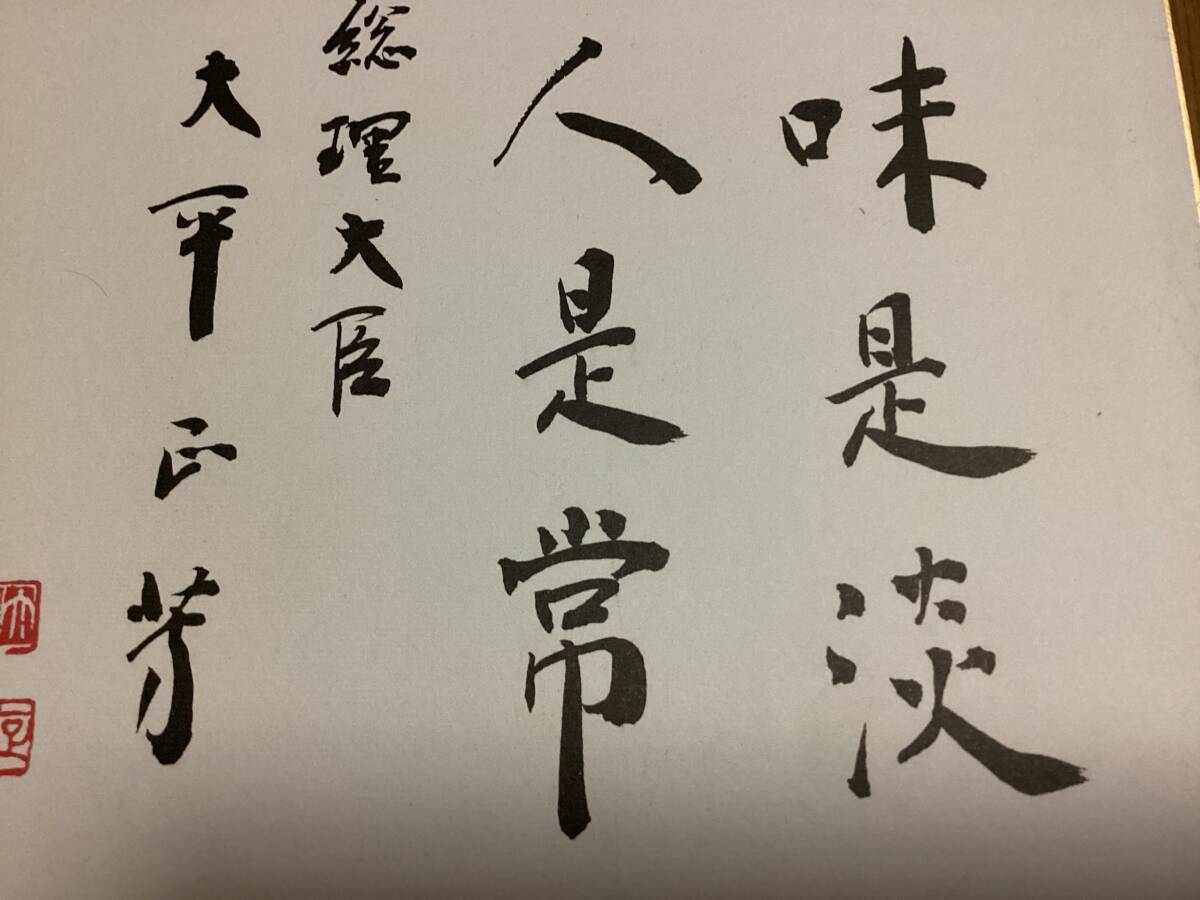 味是淡
人是常
総理大臣
大平正芳